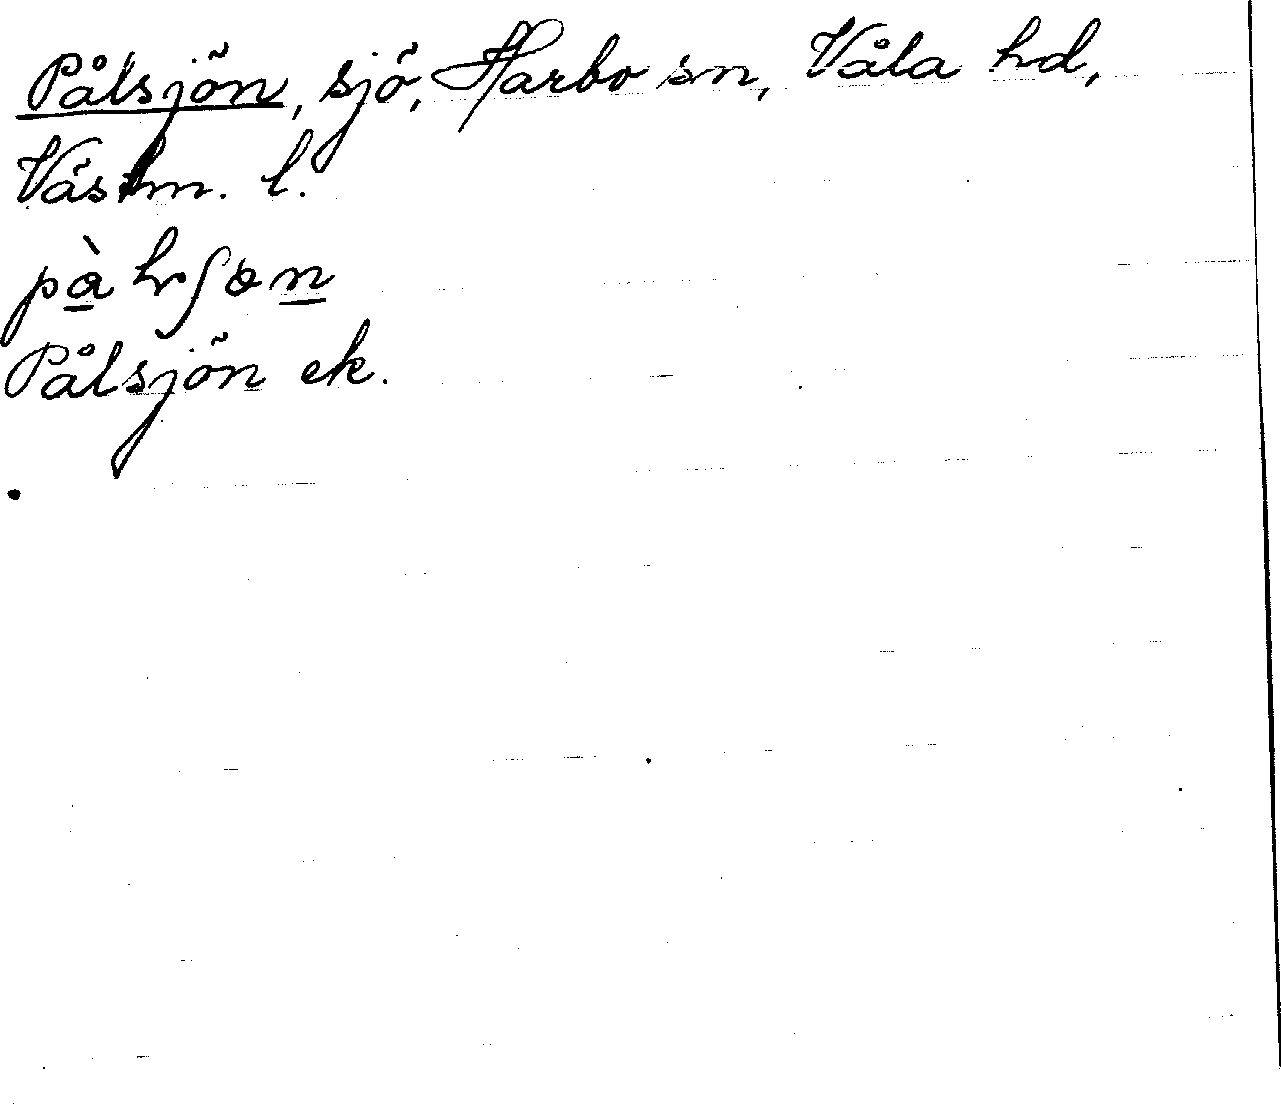 Pålsjön, sjö, Harbo sn, Våla hd,
Västm. l.
Pålsjön ek.